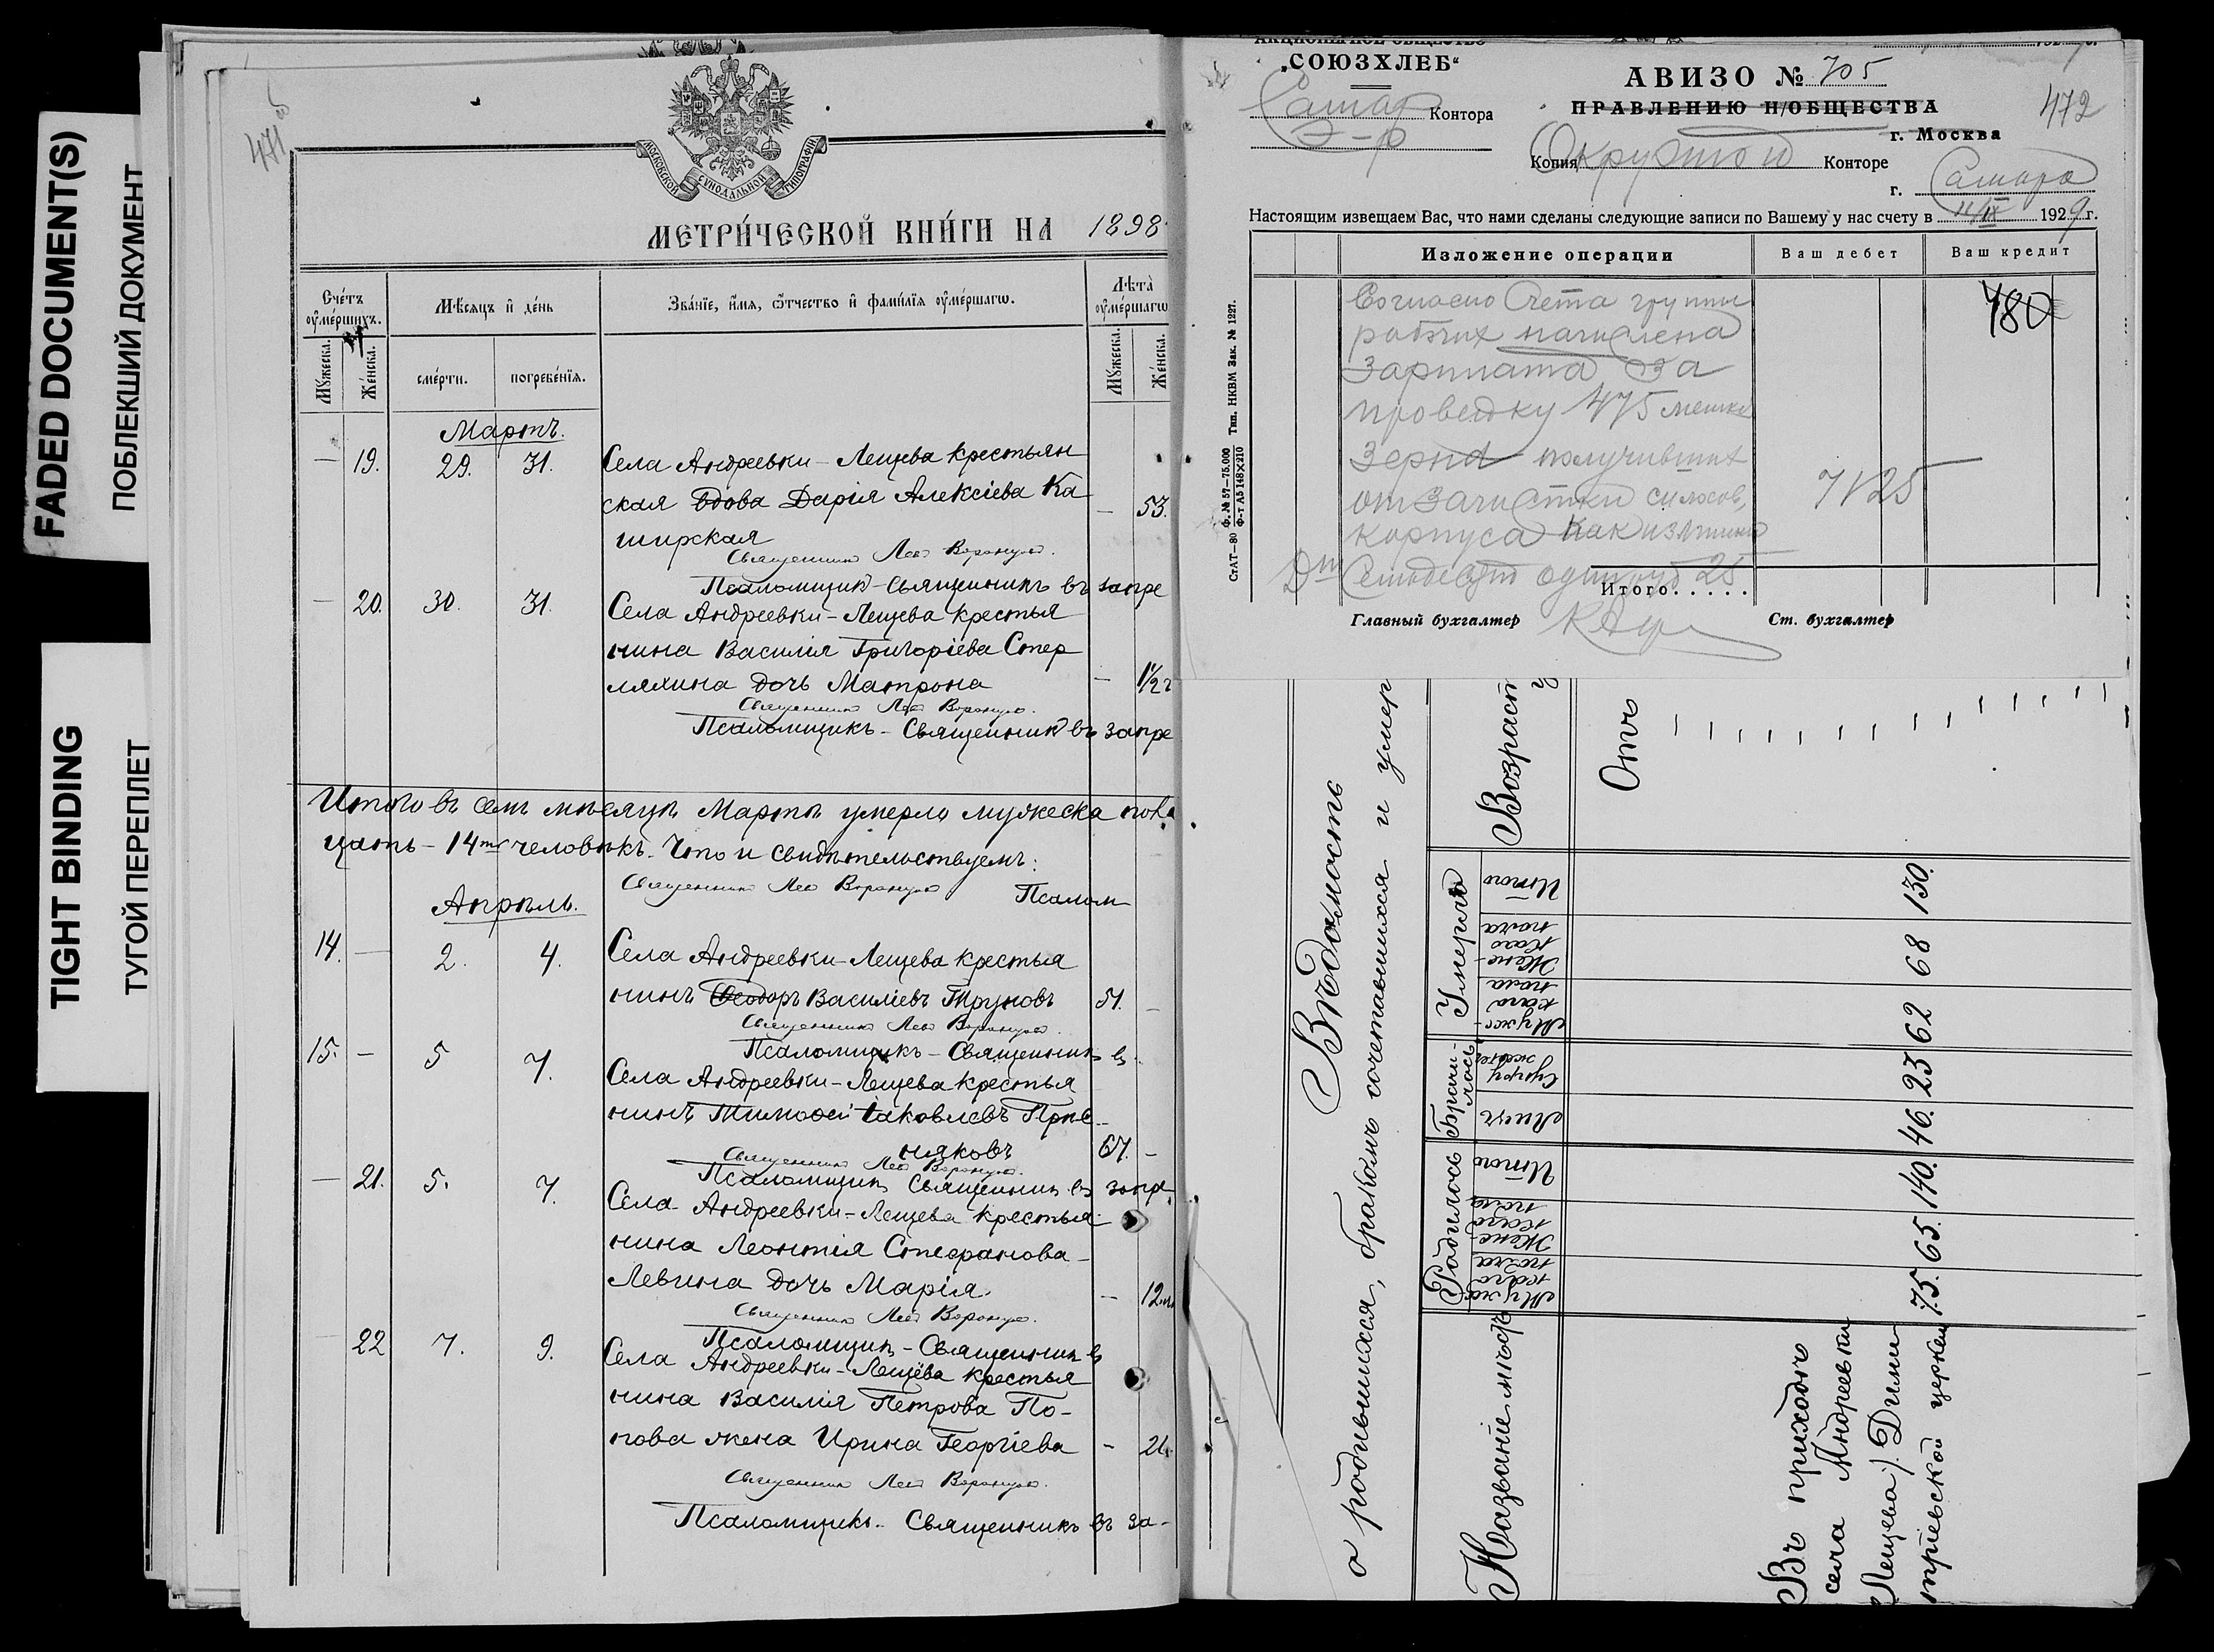 FADED DOCUMENT(S)
ПОБЛЕКШИЙ ДОКУМЕНТ
TIGHT BINDING
ТУГОЙ ПЕРЕПЛЕТ
471
МОСКОВСКОЙ СѴНОДАЛЬНОЙ ТИПОГРАФІИ
МЕТРИ́ЧЕСКОЙ КНИ́ГИ НА 1898
Сче́тъ ᲂу҆ме́ршихъ.
Мѣ́сяцъ и҆ де́нь
Зва́нїе, и҆́мѧ, ѻ҆́тчество и҆ фами́лїѧ ᲂу҆ме́ршагѡ.
Лѣ́та ᲂу҆ме́ршагѡ
Мꙋ́жеска.
Же́нска.
сме́рти.
погребе́нїѧ.
Мꙋ́жеска.
Же́нска.
Мартъ.
— 19. 29. 31. Села Андреевки-Лещева крестьян
ская вдова Дарія Алексіева Ка — 53.
ширская
Священникъ Лев
Псаломщик-Священникъ въ запре
— 20. 30. 31. Села Андреевки-Лещева крестья
нина Василія Григоріева Стер
ляхина дочь Матрона — 1½ г
Священникъ Лев
Псаломщикъ - Священник въ запре
Итого въ семъ мѣсяцѣ Мартѣ умерло мужеска пола
цать - 14ть человѣкъ. Что и свидѣтельствуемъ:
Священникъ Лев
Псалом
Апрѣль.
14. — 2. 4. Села Андреевки-Лещева крестья
нинъ Ѳеодоръ Василіевъ Труновъ 51. —
Священникъ Лев
Псаломщикъ - Священникъ въ
15. — 5 7. Села Андреевки-Лещева крестья
нинъ Тимофей Іаковлевъ Прѣс-
няковъ 67. —
Священникъ Лев
Псаломщикъ Священникъ въ запре
— 21. 5. 7. Села Андреевки-Лещева крестья
нина Леонтія Стефанова
Левина дочь Марія. — 12
Священникъ Лев
Псаломщикъ - Священникъ въ
22 7. 9. Села Андреевки-Лещева крестья
нина Василія Петрова По-
пова жена Ирина Георгіева —
Священникъ Лев
Псаломщикъ.. Священникъ въ за-
АКЦИОНЕРНОЕ ОБЩЕСТВО
„СОЮЗХЛЕБ“
Самар Контора
АВИЗО № 705
ПРАВЛЕНИЮ Н/ОБЩЕСТВА
г. Москва
472
Копия Окружной Конторе
г. Самара
Настоящим извещаем Вас, что нами сделаны следующие записи по Вашему у нас счету в 11/IX 1929 г.
Изложение операции
Ваш дебет
Ваш кредит
Согласно счета группы
рабочих начислена
зарплата за
475 мешков
зерна получившихся
от зачистки силосов,
корпуса как излишки
71 25
480
Семьдесят один руб 25
Итого.....
Главный бухгалтер
Ст. бухгалтер
СтАТ—80 Ф. № 57—75.000 Ф-т А5 148×210 Тип. НКВМ Зак. № 1227.
Вѣдомость
о родившихся, бракомъ сочетавшихся и умер
Названіе мѣстъ
Родилось
Мужскаго пола
Женскаго пола
Итого
Бракилось
Лицъ
Супружествъ
Умерло
Мужскаго пола
Женскаго пола
Итого
Возраст у
Отъ
Въ приходѣ
села Андреевки
(Лещева) Дими-
тріевской церкви
75. 65. 140. 46. 23 62 68 130.